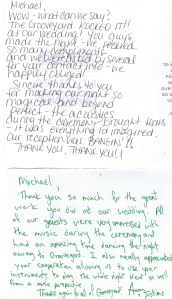 Michael
Wow - what can we say?
The Graveyard ROCKED IT!!
at our wedding! You guys
made the night - we received
so many compliments
and were asked by several
for your contact info - we
happily obliged!
Sincere thanks to you
for making our night so
magical and beyond
perfect - the acoustics
during the ceremony brought tears
- it was everything I'd imagined.
Our reception was BANGIN'!!
THANK YOU, THANK YOU!!
Michael,
Thank you so much for the great
work you did at our wedding. All
of our guests were very impressed with
the music during the ceremony and
had an amazing time dancing the night
away to Graveyard. I also really appreciated
your cooperation allowing us to use your
instruments to play the white night went so well
from a music perspective.
Thanks again